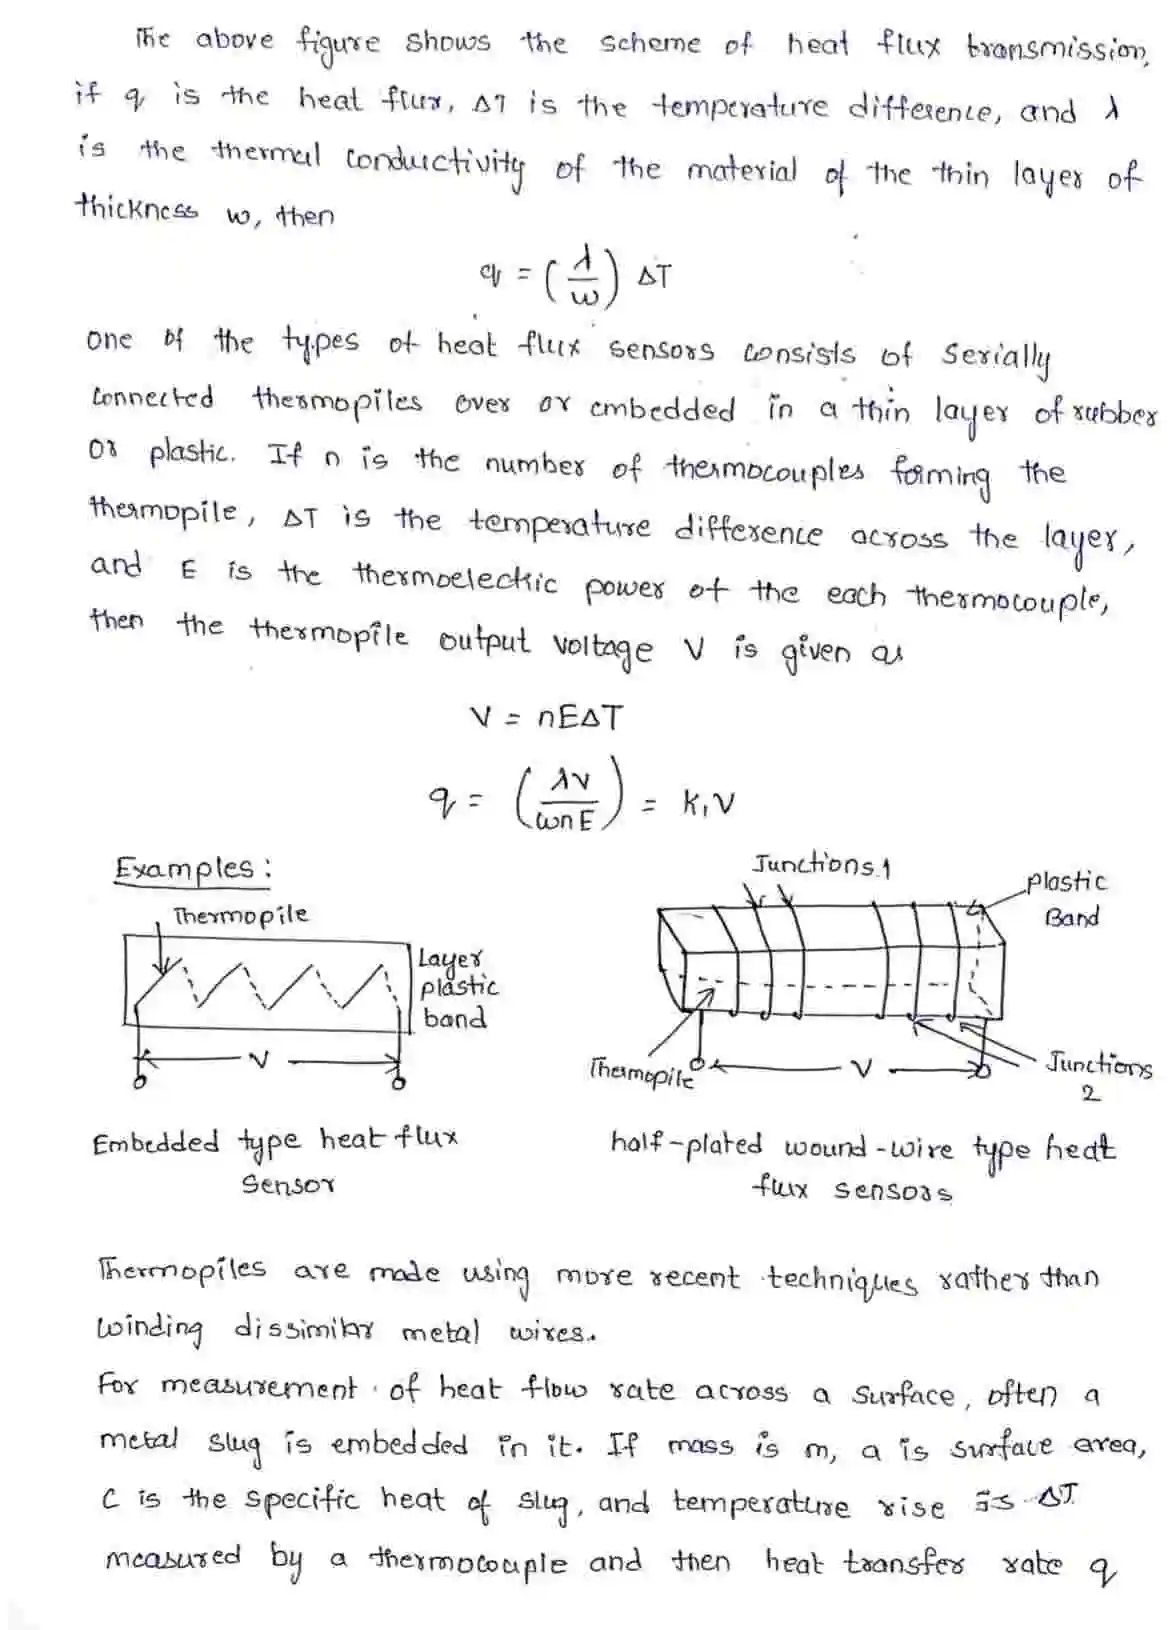 The above figure shows the scheme of heat flux transmission,
if q is the heat flux, ΔT is the temperature difference, and λ
is the thermal conductivity of the material of the thin layer of
thickness w, then
q = (λ/w) ΔT
one of the types of heat flux sensors consists of serially
connected thermopiles over or embedded in a thin layer of rubber
or plastic. If n is the number of thermocouples forming the
thermopile, ΔT is the temperature difference across the layer,
and E is the thermoelectric power of the each thermocouple,
then the thermopile output voltage V is given as
V = nEΔT
q = (λV/wnE) = K₁V
Examples:
Thermopile
Layer
plastic
band
V
Embedded type heat flux
sensor
Junctions 1
plastic
Band
Thermopile
V
Junctions
2
half-plated wound-wire type heat
flux sensors
Thermopiles are made using more recent techniques rather than
winding dissimilar metal wires.
For measurement of heat flow rate across a surface, often a
metal slug is embedded in it. If mass is m, a is surface area,
C is the specific heat of slug, and temperature rise is ΔT
measured by a thermocouple and then heat transfer rate q